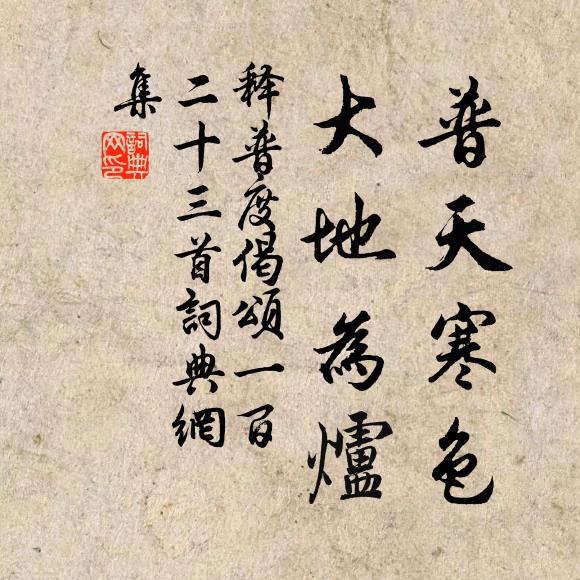 普天寒色
大地為爐
释普度偈頌一百
二十三首詞典網
集
詞典
网印